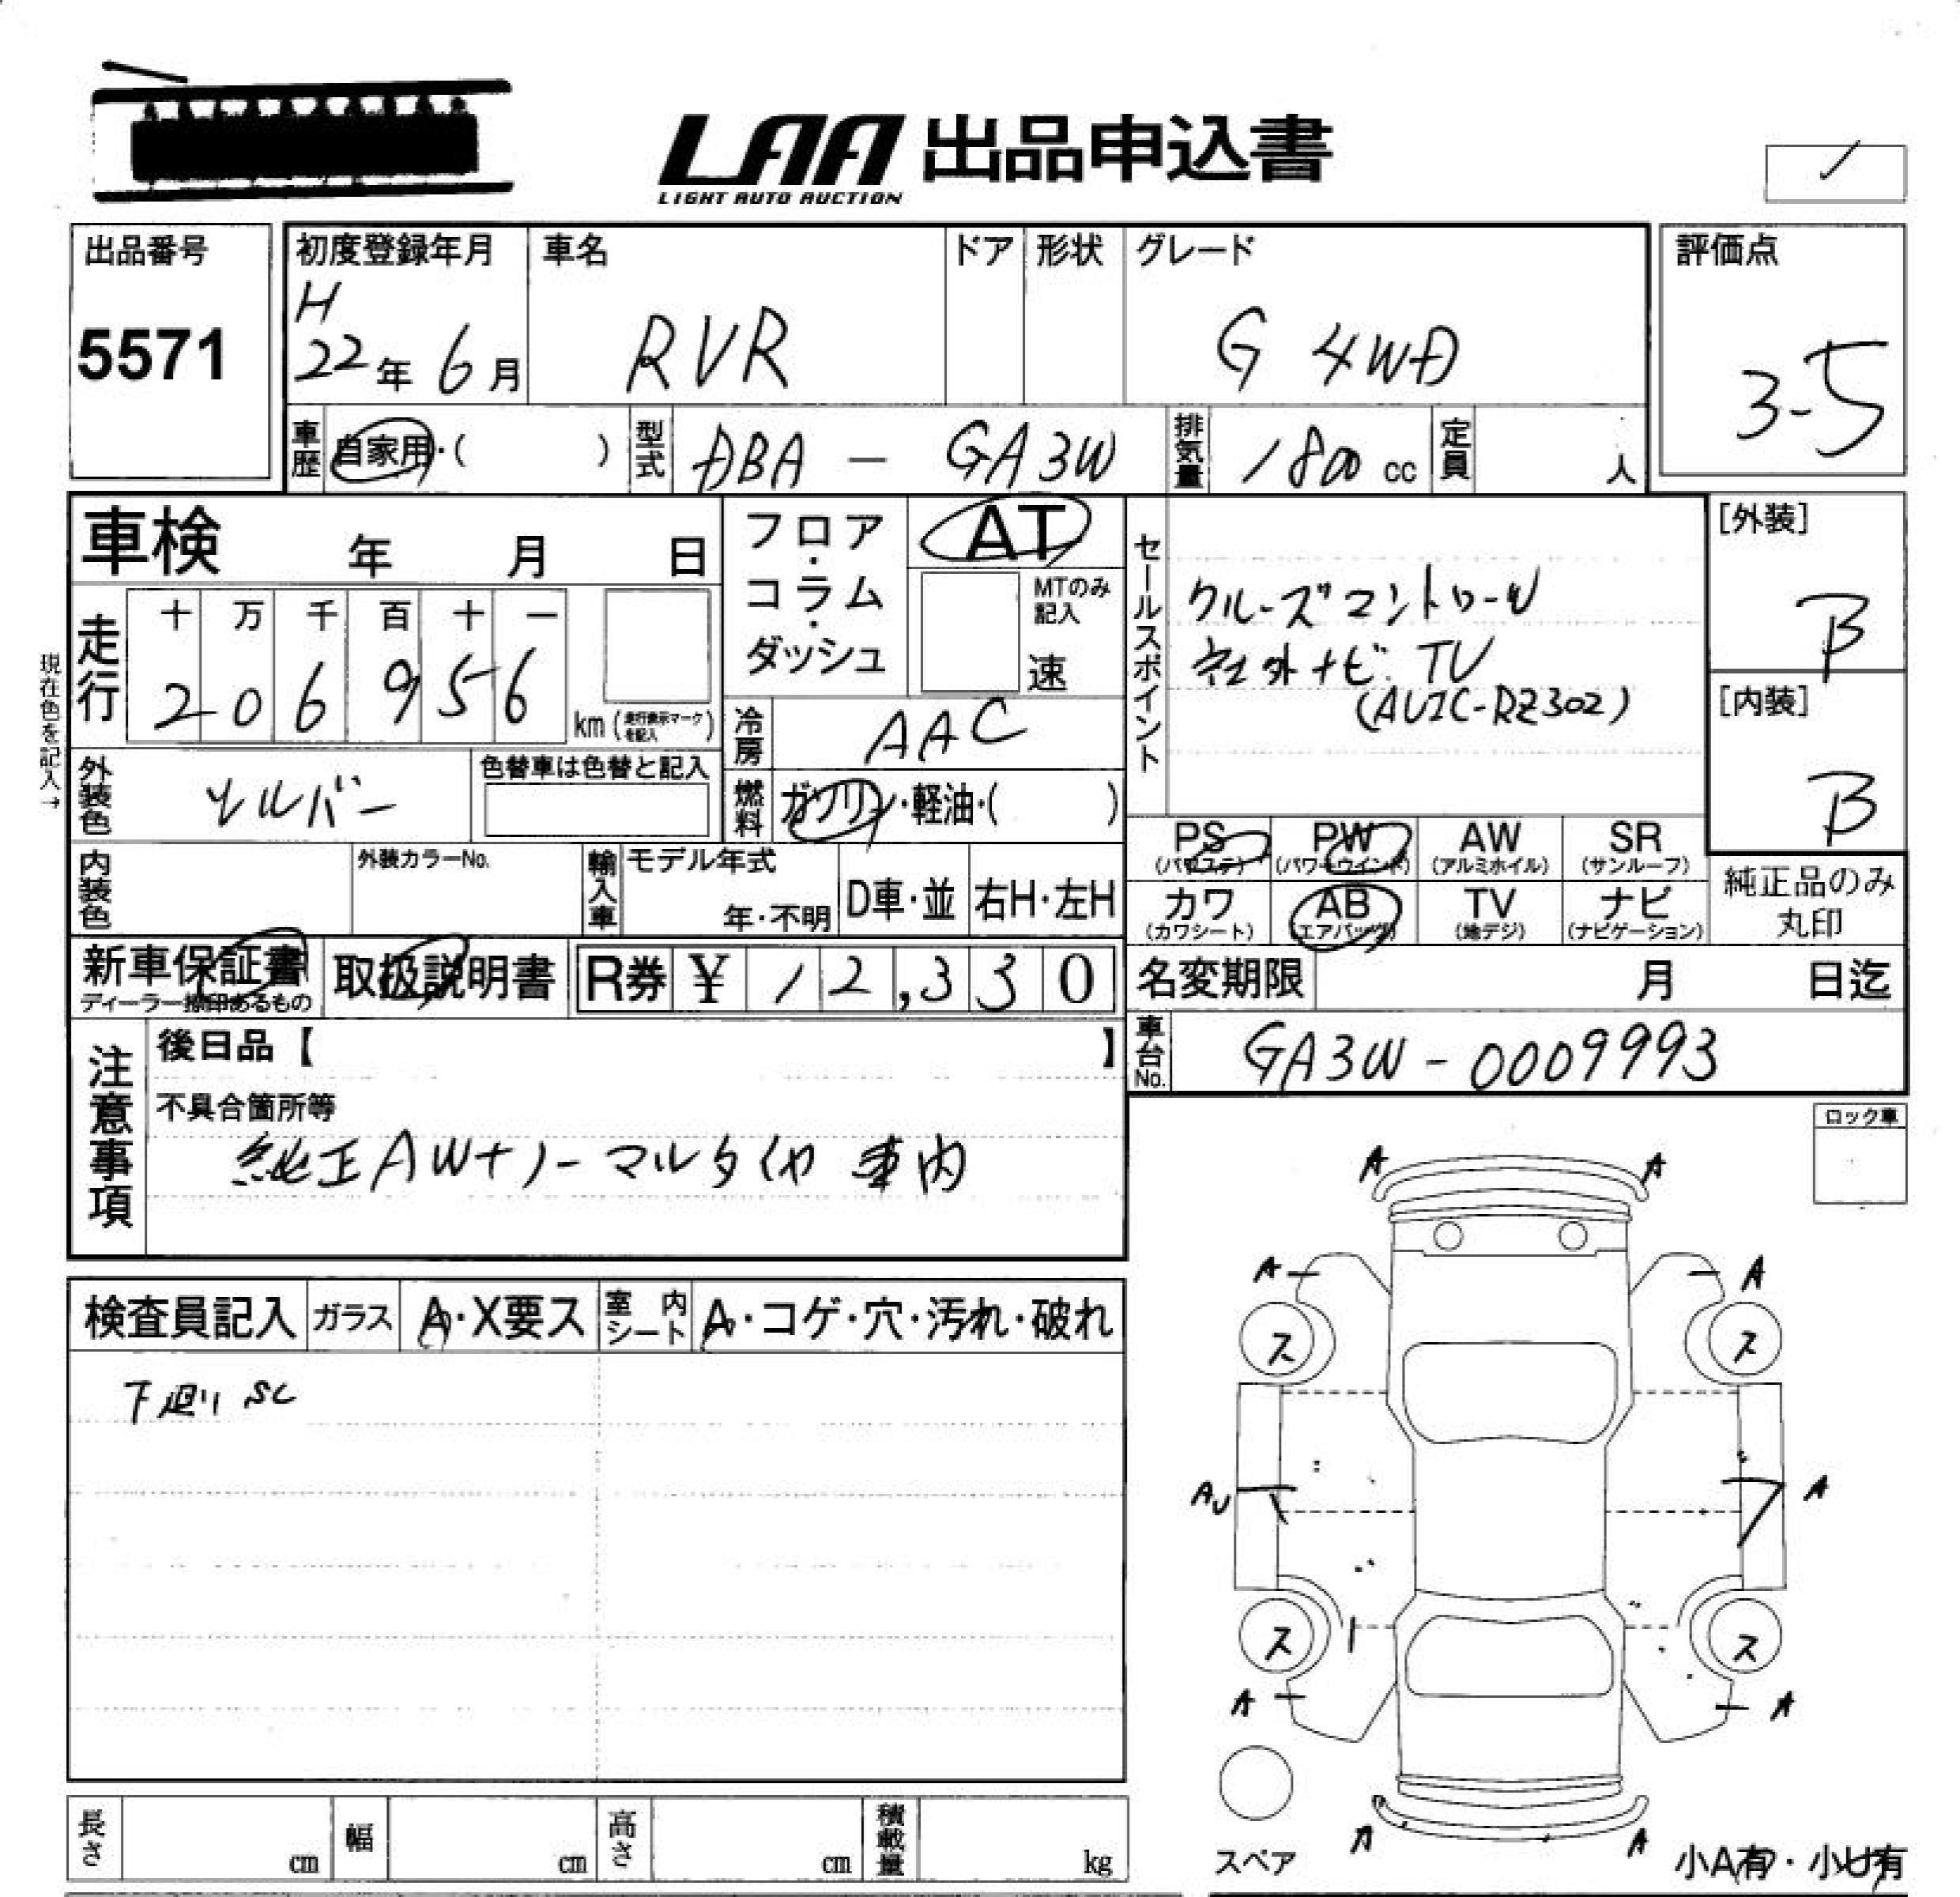 LAA 出品申込書
LIGHT AUTO AUCTION
出品番号
5571
初度登録年月
H
22年 6月
車名
RVR
ドア
形状
グレード
G 4WD
評価点
3-5
車歴
自家用・( )
型式
DBA - GA3W
排気量
1800 cc
定員
人
車検 年 月 日
フロア・コラム・ダッシュ
AT
MTのみ記入
速
セールスポイント
クルーズコントロール
社外ナビ. TV
(AVIC-RZ302)
[外装]
B
[内装]
B
現在色を記入→
走行
十 万 千 百 十 一
2 0 6 9 5 6
km (走行表示マークを記入)
冷房
AAC
外装色
シルバー
色替車は色替と記入
燃料
ガソリン・軽油・( )
PS
(パワステ)
PW
(パワーウインド)
AW
(アルミホイル)
SR
(サンルーフ)
カワ
(カワシート)
AB
(エアバッグ)
TV
(地デジ)
ナビ
(ナビゲーション)
純正品のみ
丸印
内装色
外装カラーNo.
輸入車
モデル年式
年・不明
D車・並
右H・左H
新車保証書
ディーラー捺印あるもの
取扱説明書
R券 ¥ 12,330
名変期限 月 日迄
車台No.
GA3W-0009993
注意事項
後日品【 】
不具合箇所等
純正AW+ノーマルタイヤ 車内
ロック車
検査員記入
ガラス
A・X要ス
室内シート
A・コゲ・穴・汚れ・破れ
下廻り SC
A A
A A
ス ス
AU A
ス ス
A A
A A
スペア
小A有・小U有
長さ cm
幅 cm
高さ cm
積載量 kg